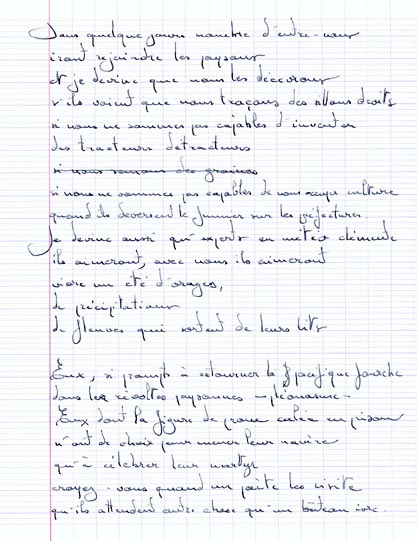 Dans quelque jours nombre d'entre-nous
iront rejoindre les paysans
et je devine que nous les décevrons
s'ils voient que nous traçons des sillons droits
si nous ne sommes pas capables d'inventer
des tracteurs détracteurs
si nous semons des graines
si nous ne sommes pas capables de nous culture
quand ils déversent le fumier sur les préfectures.
Je devine aussi qu'experts en météo démente
ils aimeront, avec nous ils aimeront
vivre un été d'orages,
de précipitations
de fleuves qui sortent de leurs lits
Eux, si prompts à retourner la pacifique fourche
dans les révoltes paysannes - pléonasme -
Eux dont la figure de proue en prison
n'ont de choix pour mener leur navire
qu'à célébrer leur martyr
croyez-vous quand un poète les visite
qu'ils attendent autre chose qu'un bateau ivre.